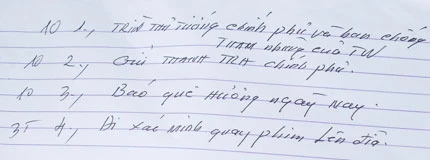 10 1., TRÌNH THỦ TƯỚNG chính phủ và ban chống
THAM nhũng của TW
10 2., Gửi THANH TRA chính phủ.
10 3., Báo quê Hương ngày Nay.
35 4., Đi xác minh quay phim Lên đĩa.